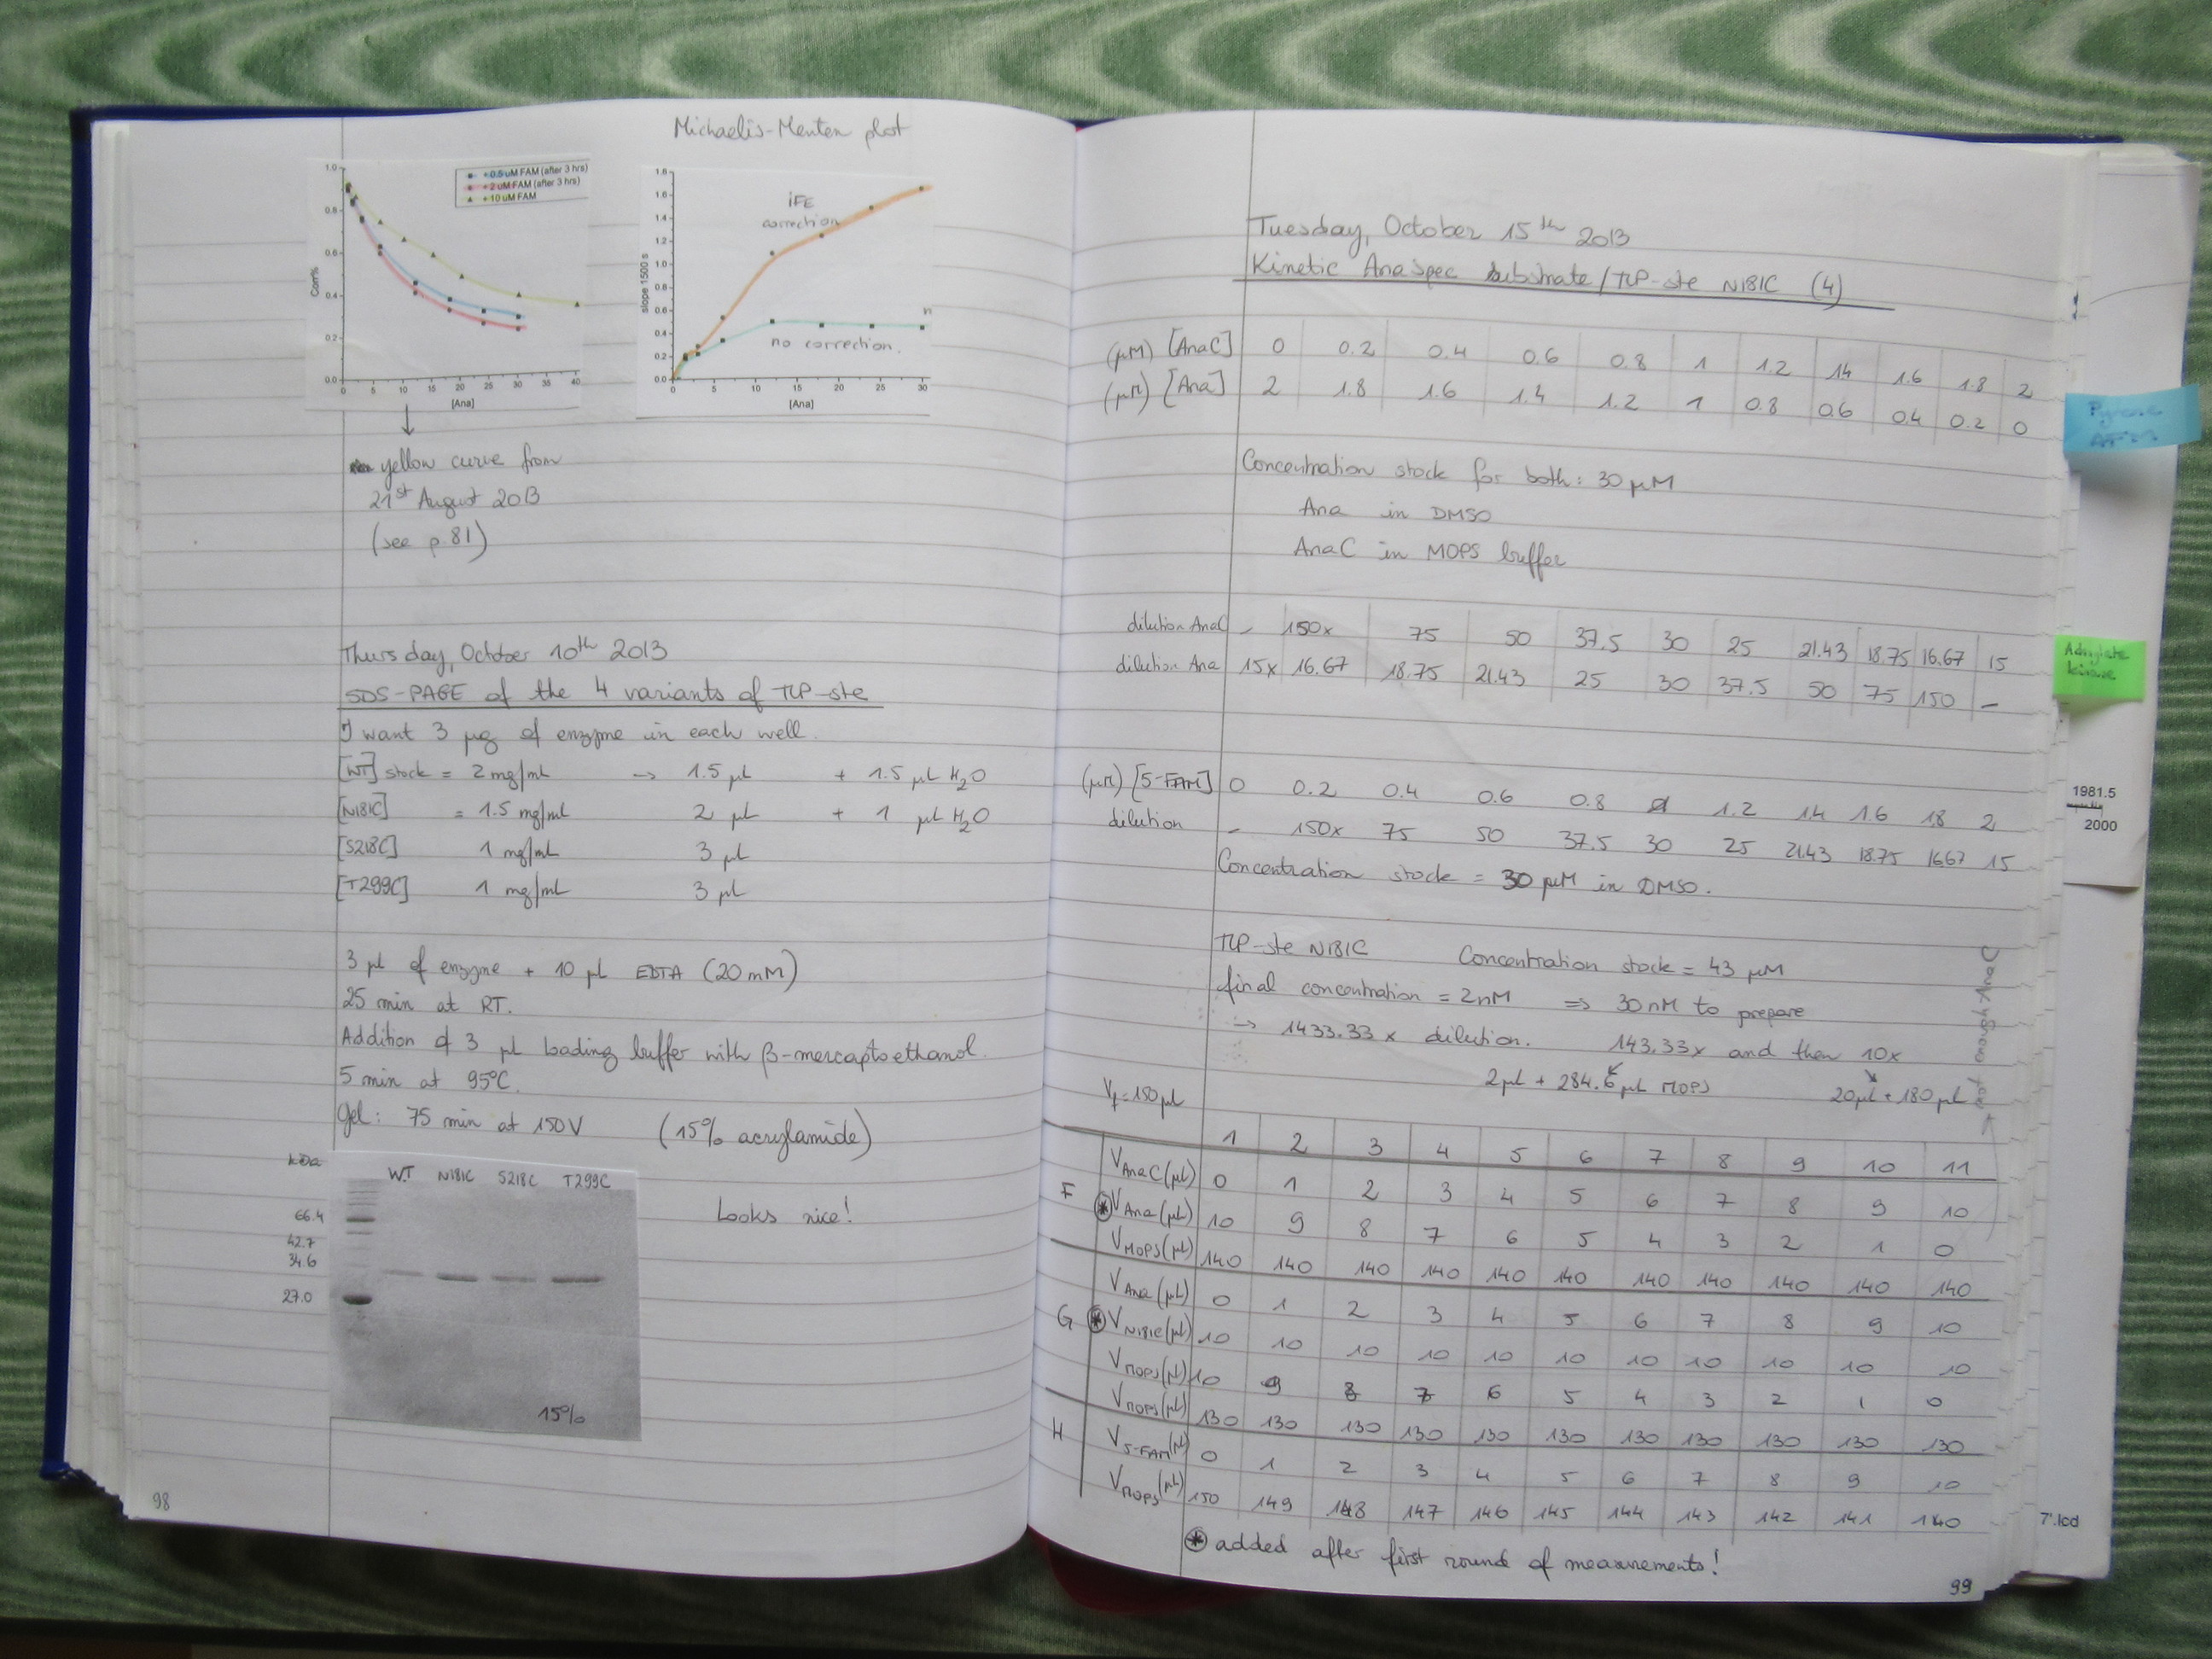 Michaelis-Menten plot
+0.5 uM FAM (after 3 hrs)
+2 uM FAM (after 3 hrs)
+10 uM FAM
1.0
0.8
0.6
0.4
0.2
0.0
Corr%
0 5 10 15 20 25 30 35 40
[Ana]
1.8
1.6
1.4
1.2
1.0
0.8
0.6
0.4
0.2
0.0
slope 1500 s
iFE
correction
no correction.
0 5 10 15 20 25 30
[Ana]
yellow curve from
21st August 2013
(see p.81)
Thursday, October 10th 2013
SDS-PAGE of the 4 variants of TLP-ste
I want 3 µg of enzyme in each well.
[WT] stock = 2 mg/mL → 1.5 µL + 1.5 µL H2O
[N181C] = 1.5 mg/mL 2 µL + 1 µL H2O
[S218C] 1 mg/mL 3 µL
[T299C] 1 mg/mL 3 µL
3 µL of enzyme + 10 µL EDTA (20 mM)
25 min at RT.
Addition of 3 µL loading buffer with β-mercaptoethanol.
5 min at 95°C.
Gel: 75 min at 150V (15% acrylamide)
kDa WT N181C S218C T299C
66.4
42.7
34.6
27.0
15%
Looks nice!
98
Tuesday, October 15th 2013
Kinetic Anaspec substrate/TLP-ste N181C (4)
(µM) [AnaC] 0 0.2 0.4 0.6 0.8 1 1.2 1.4 1.6 1.8 2
(µM) [Ana] 2 1.8 1.6 1.4 1.2 1 0.8 0.6 0.4 0.2 0
Concentration stock for both: 30 µM
Ana in DMSO
AnaC in MOPS buffer
dilution AnaC - 150x 75 50 37.5 30 25 21.43 18.75 16.67 15
dilution Ana 15x 16.67 18.75 21.43 25 30 37.5 50 75 150 -
(µM) [5-FAM] 0 0.2 0.4 0.6 0.8 1 1.2 1.4 1.6 1.8 2
dilution - 150x 75 50 37.5 30 25 21.43 18.75 16.67 15
Concentration stock = 30 µM in DMSO.
TLP-ste N181C Concentration stock = 43 µM
final concentration = 2nM ⇒ 30 nM to prepare
→ 1433.33 x dilution. 143.33x and then 10x
2µL + 284.6 µL MOPS 20µL + 180 µL
not enough AnaC
Vf=150µL
1 2 3 4 5 6 7 8 9 10 11
F VAnaC(µL) 0 1 2 3 4 5 6 7 8 9 10
* VAna(µL) 10 9 8 7 6 5 4 3 2 1 0
VMOPS(µL) 140 140 140 140 140 140 140 140 140 140 140
G VAna(µL) 0 1 2 3 4 5 6 7 8 9 10
* VN181C(µL) 10 10 10 10 10 10 10 10 10 10 10
VMOPS(µL) 10 9 8 7 6 5 4 3 2 1 0
VMOPS(µL) 130 130 130 130 130 130 130 130 130 130 130
H V5-FAM(µL) 0 1 2 3 4 5 6 7 8 9 10
VMOPS(µL) 150 149 148 147 146 145 144 143 142 141 140
* added after first round of measurements!
99
Pyrene
Adenylate
kinase
1981.5
2000
7'.lcd